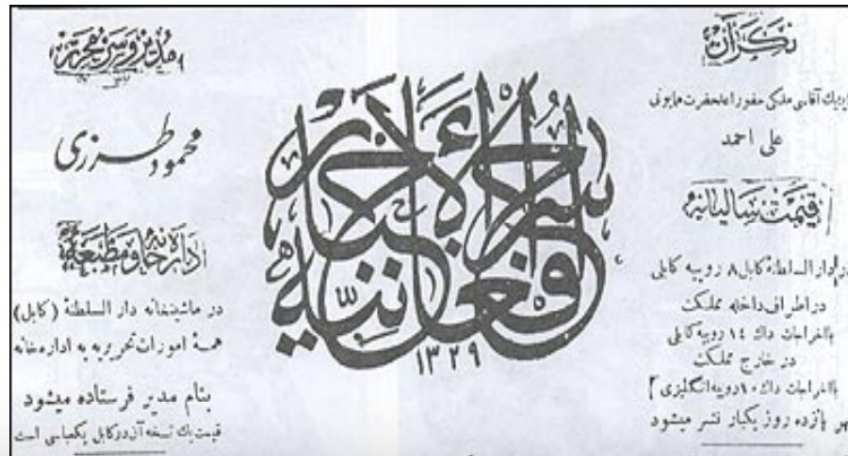 نگران
ایشیک آقاسی ملکی حضور اعلیحضرت همایونی
علی احمد
قیمت سالیانه
در دار السلطنهٔ کابل ۸ روپیه کابلی
در اطراف داخلهٔ مملکت
بااخراجات داك ۱٤ روپیه کابلی
در خارج مملکت
بااخراجات داك ۱۰ روپیه انگلیزی
هر پانزده روز یکبار نشر میشود
سراج الأخبار
افغانیه
۱۳۲۹
مدیر و سر محرر
محمود طرزی
اداره خانه و مطبعه
در ماشینخانه دار السلطنهٔ (کابل)
همهٔ امورات تحریریه به اداره خانه
بنام مدیر فرستاده میشود
قیمت یك نسخه آن در کابل یکعباسی است